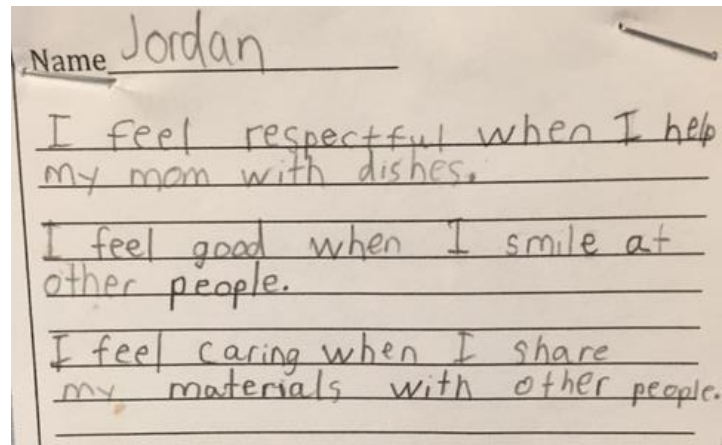 Name Jordan
I feel respectful when I help
my mom with dishes.
I feel good when I smile at
other people.
I feel caring when I share
my materials with other people.